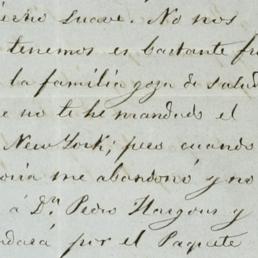 suave. No nos
tenemos es bastante
la familia goza de salud
no te he mandado el
New York; pero cuando
me abandonó y no
á Dn. Pedro Hargous y
por el Paquete